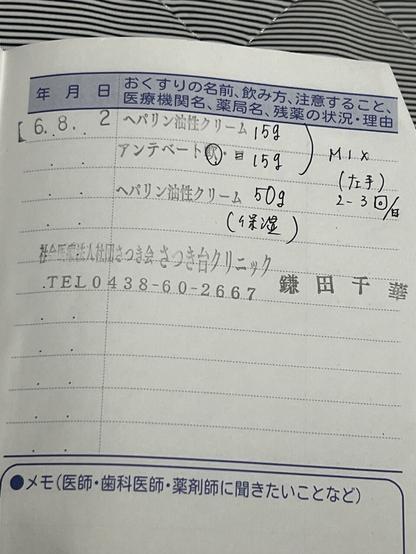 年 月 日
おくすりの名前、飲み方、注意すること、
医療機関名、薬局名、残薬の状況・理由
6. 8. 2 ヘパリン油性クリーム 15g
アンテベート軟・ 15g
MIX
(左手)
2-3回/日
ヘパリン油性クリーム 50g
(保湿)
社会医療法人社団さつき会 さつき台クリニック
TEL0438-60-2667 鎌田千華
●メモ(医師・歯科医師・薬剤師に聞きたいことなど)